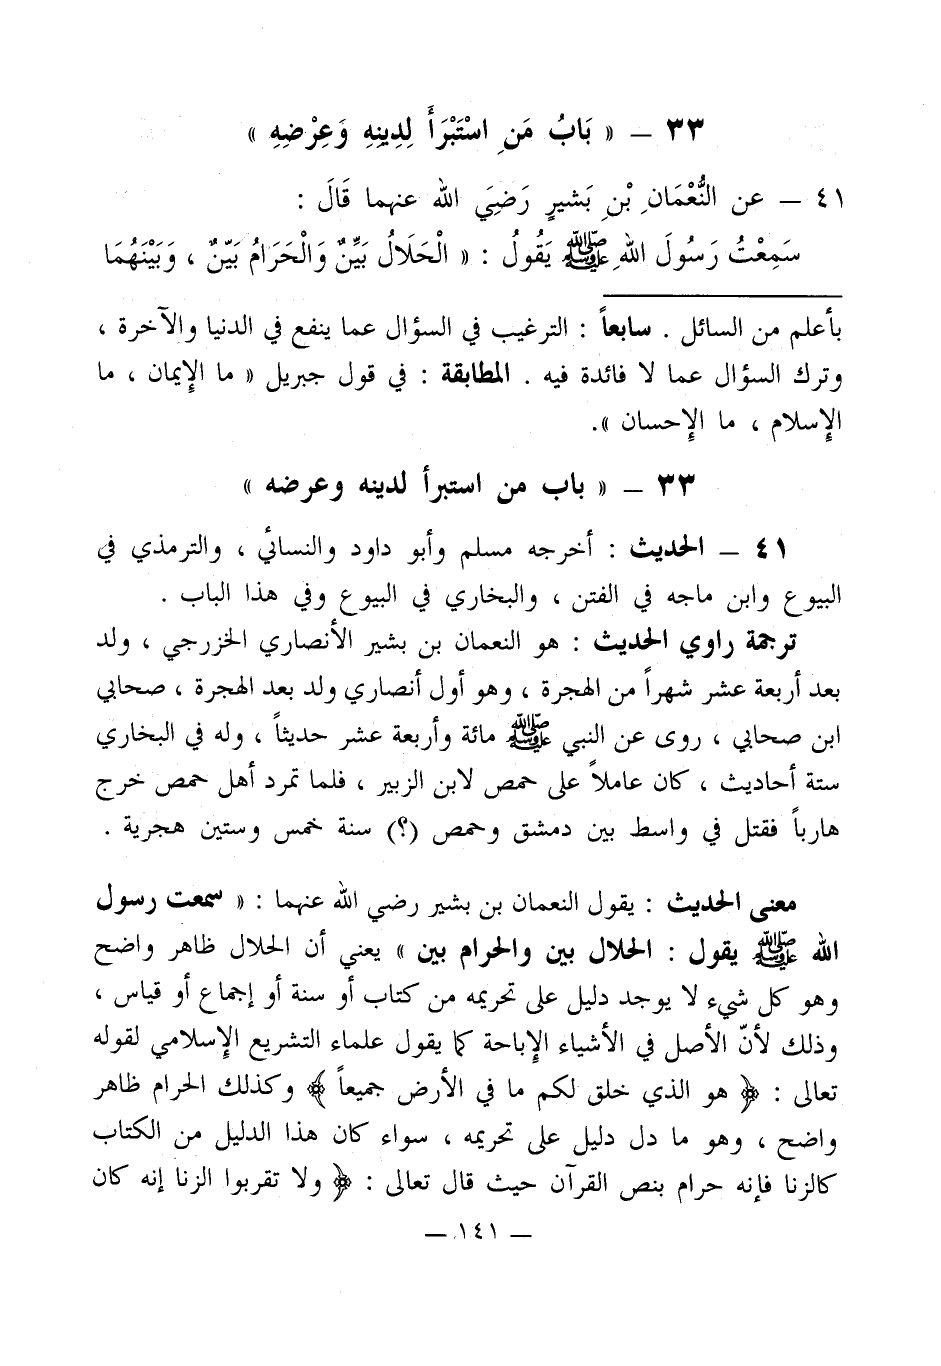 ٣٣ – « بَابُ مَنِ اسْتَبْرَأَ لِدِينِهِ وَعِرْضِهِ »
٤١ – عن النُّعْمَانِ بْنِ بَشيرٍ رَضِيَ الله عنهما قَالَ :
سَمِعْتُ رَسُولَ اللهِ ﷺ يَقُولُ : « الْحَلَالُ بَيِّنٌ وَالْحَرَامُ بَيِّنٌ ، وَبَيْنَهُمَا
بأعلم من السائل . سابعاً : الترغيب في السؤال عما ينفع في الدنيا والآخرة ،
وترك السؤال عما لا فائدة فيه . المطابقة : في قول جبريل « ما الإيمان ، ما
الإسلام ، ما الإحسان ».
٣٣ – « باب من استبرأ لدينه وعرضه »
٤١ – الحديث : أخرجه مسلم وأبو داود والنسائي ، والترمذي في
البيوع وابن ماجه في الفتن ، والبخاري في البيوع وفي هذا الباب .
ترجمة راوي الحديث : هو النعمان بن بشير الأنصاري الخزرجي ، ولد
بعد أربعة عشر شهراً من الهجرة ، وهو أول أنصاري ولد بعد الهجرة ، صحابي
ابن صحابي ، روى عن النبي ﷺ مائة وأربعة عشر حديثاً ، وله في البخاري
ستة أحاديث ، كان عاملاً على حمص لابن الزبير ، فلما تمرد أهل حمص خرج
هارباً فقتل في واسط بين دمشق وحمص (؟) سنة خمس وستين هجرية .
معنى الحديث : يقول النعمان بن بشير رضي الله عنهما : « سمعت رسول
الله ﷺ يقول : الحلال بين والحرام بين » يعني أن الحلال ظاهر واضح
وهو كل شيء لا يوجد دليل على تحريمه من كتاب أو سنة أو إجماع أو قياس ،
وذلك لأنّ الأصل في الأشياء الإباحة كما يقول علماء التشريع الإسلامي لقوله
تعالى : ﴿ هو الذي خلق لكم ما في الأرض جميعاً ﴾ وكذلك الحرام ظاهر
واضح ، وهو ما دل دليل على تحريمه ، سواء كان هذا الدليل من الكتاب
كالزنا فإنه حرام بنص القرآن حيث قال تعالى : ﴿ ولا تقربوا الزنا إنه كان
– ١٤١ –